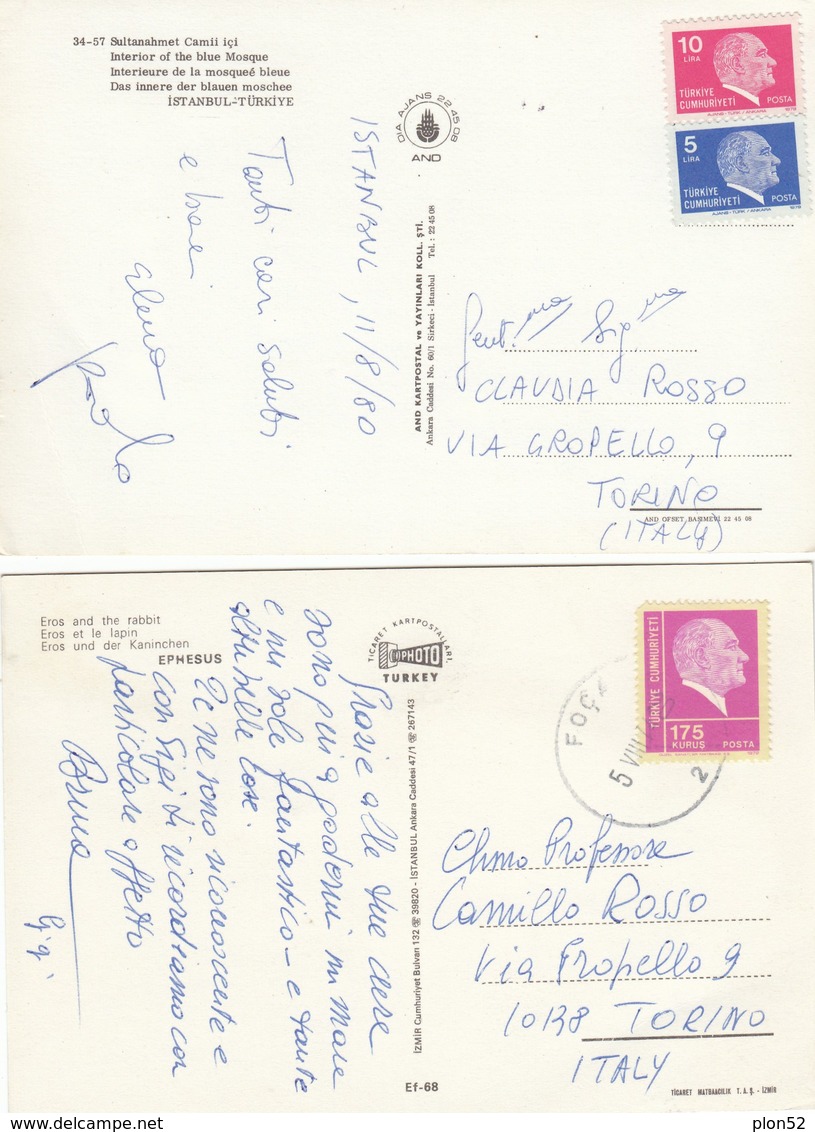 34-57 Sultanahmet Camii içi
Interior of the blue Mosque
Interieure de la mosqueé bleue
Das innere der blauen moschee
İSTANBUL-TÜRKİYE
DIA AJANS 22 45 08
AND
10
LİRA
TÜRKİYE
CUMHURİYETİ
POSTA
1978
AJANS-TÜRK / ANKARA
5
LİRA
TÜRKİYE
CUMHURİYETİ
POSTA
1978
AJANS-TÜRK / ANKARA
ISTANBUL, 11/8/80
Tanti cari saluti
e baci
Elena
Paolo
AND KARTPOSTAL ve YAYINLARI KOLL. ŞTİ.
Ankara Caddesi No. 60/1 Sirkeci - İstanbul Tel.: 22 45 08
Gent.ma Sig.ma
CLAUDIA ROSSO
VIA GROPELLO, 9
TORINO
(ITALY)
AND OFSET BASIMEVİ 22 45 08
Eros and the rabbit
Eros et le lapin
Eros und der Kaninchen
EPHESUS
TİCARET KARTPOSTALLARI,
PHOTO
TURKEY
TÜRKİYE CUMHURİYETİ
175
KURUŞ
POSTA
FOÇA
5 VIII
2
Grazie alle tue cure
sono qui a godermi un mare
e un sole fantastico - e tante
altre belle cose.
Te ne sono riconoscente e
con Gigi ti ricordiamo con
particolare affetto
Bruna
Gigi
İZMİR Cumhuriyet Bulvarı 132 ☏ 39820 - İSTANBUL Ankara Caddesi 47/1 ☏ 267143
Chmo Professore
Camillo Rosso
Via Fropello 9
10138 TORINO
ITALY
Ef-68
TİCARET MATBAACILIK T. A. Ş. - İZMİR
delcampe.net
plon52